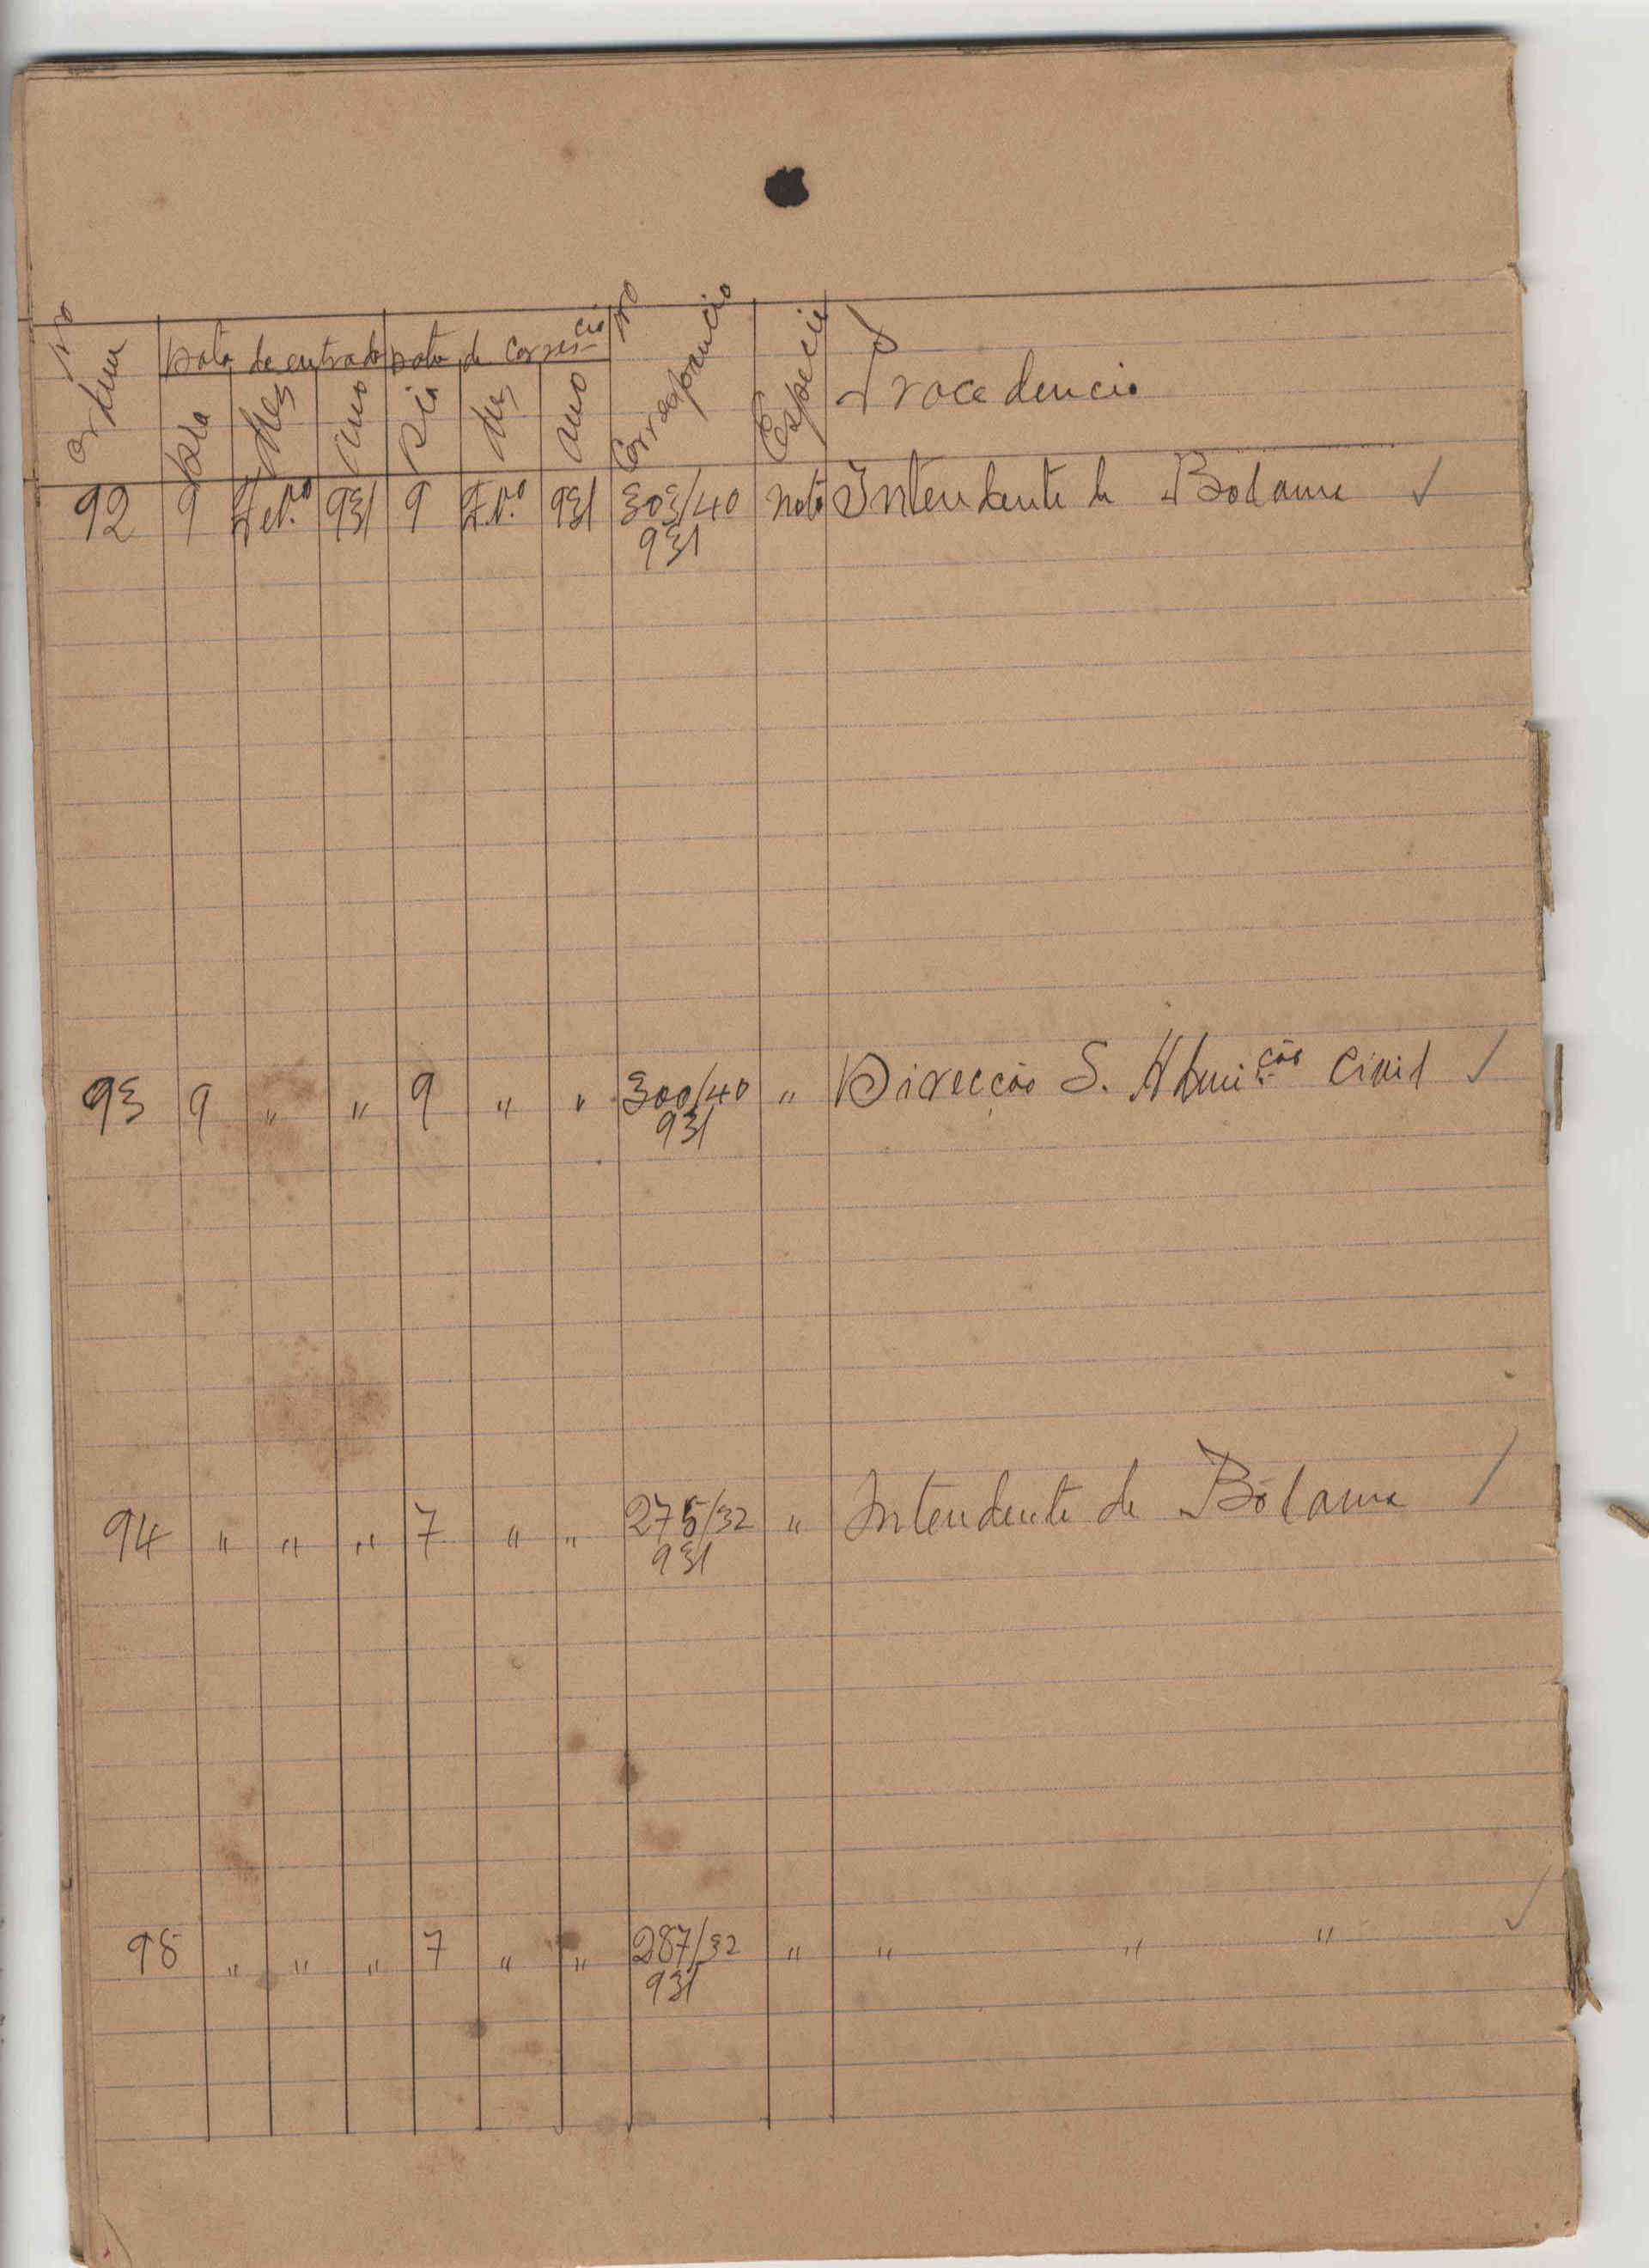 Nº ordem Data de entrada Data de corres-cia Nº Correspondencia Especie Procedencia
Dia Mes Ano Dia Mes Ano
92 9 Fev.º 931 9 F.v.º 931 303/40 nota Intendente de Bolama ✓
931
93 9 " " 9 " " 300/40 " Direcção S. Admi.ção Civil ✓
931
94 " " " 7 " " 275/32 " Intendente de Bólama ✓
931
95 " " " 7 " " 287/32 " " " " ✓
931